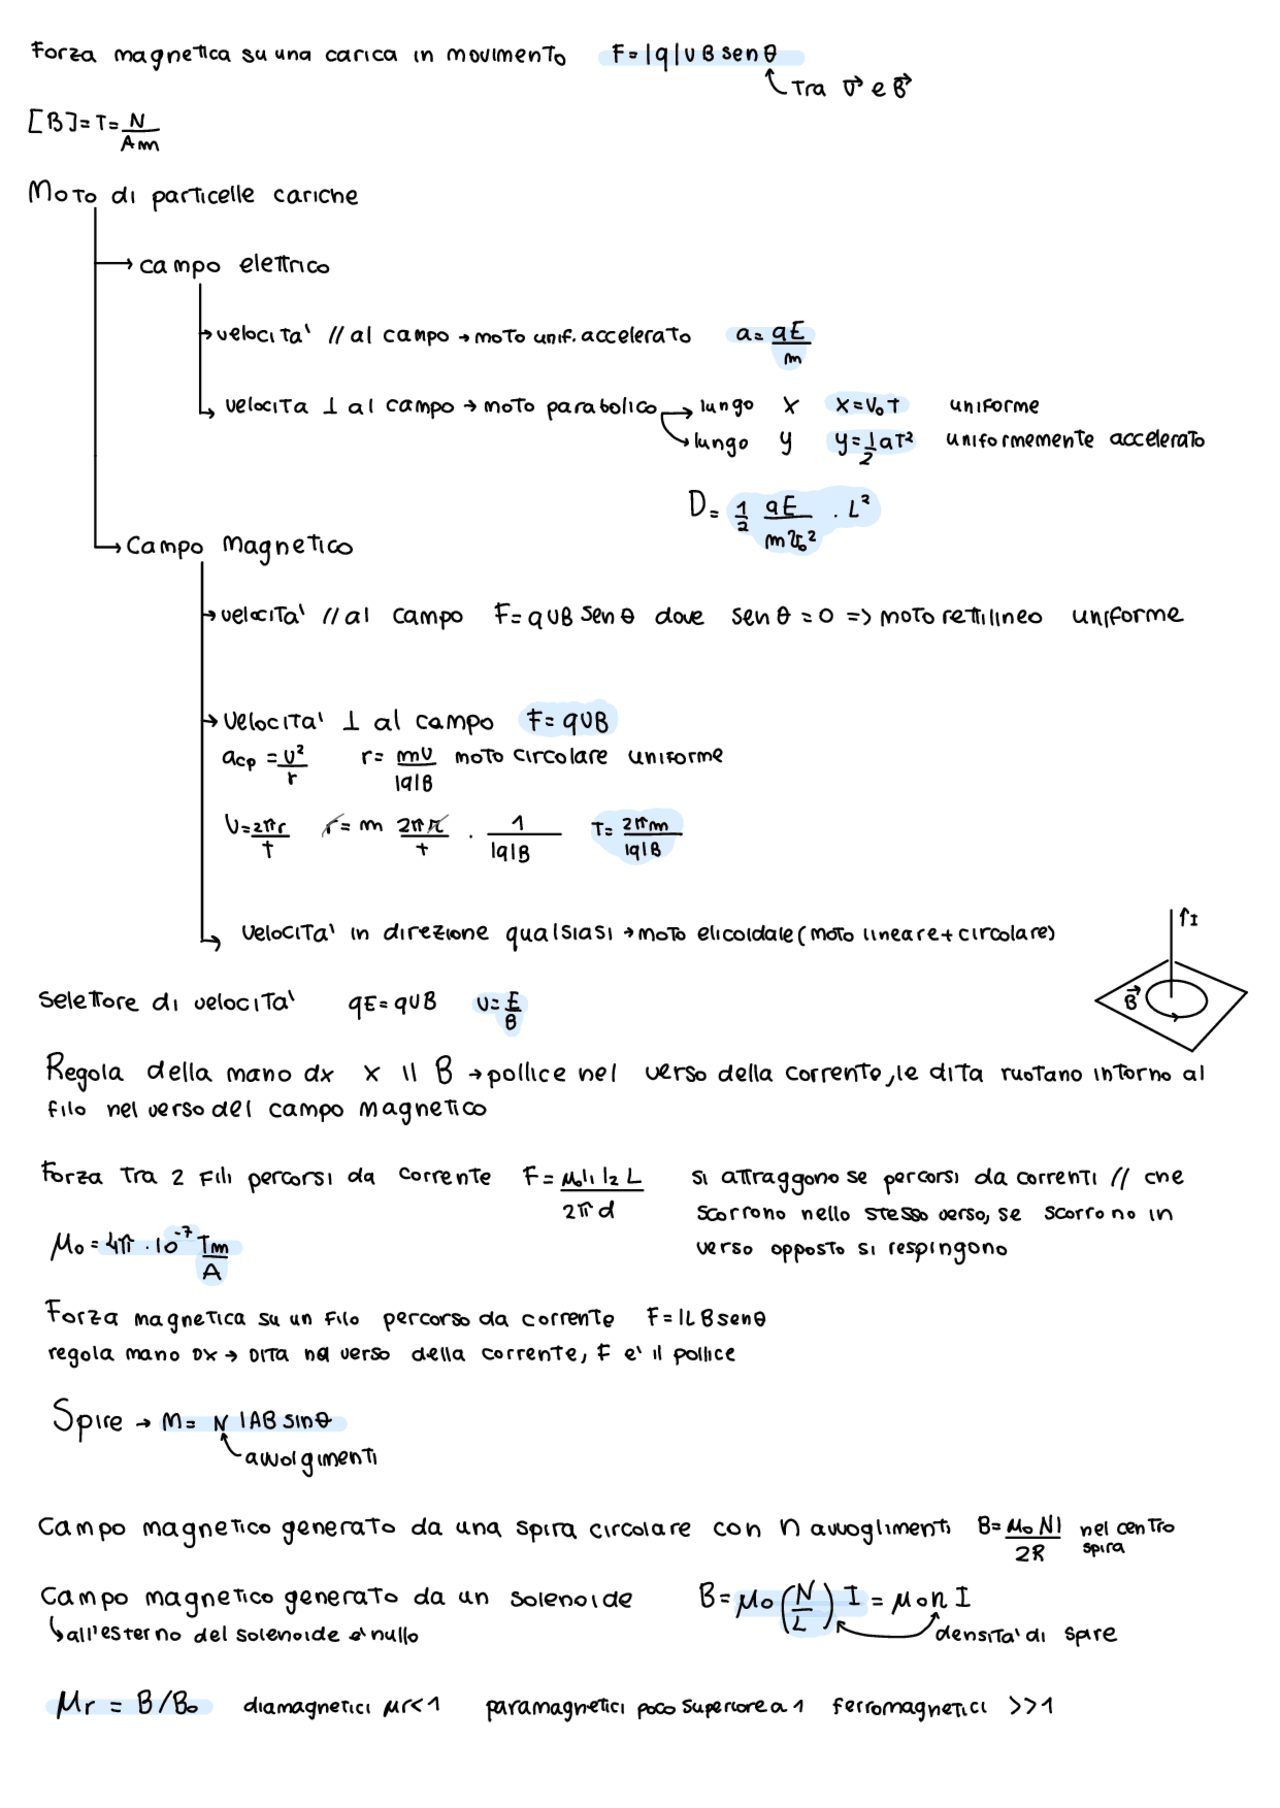 Forza magnetica su una carica in movimento F=|q|vB senθ
Tra v⃗ e B⃗
[B]=T=N/Am
Moto di particelle cariche
→ campo elettrico
→ velocita' // al campo → moto unif. accelerato a=qE/m
→ velocita ⊥ al campo → moto parabolico → lungo x x=v₀T uniforme
→ lungo y y=1/2aT² uniformemente accelerato
D= 1/2 qE/mv₀² · L²
→ Campo Magnetico
→ velocita' // al campo F=qvB senθ dove senθ=0 => moto rettilineo uniforme
→ Velocita' ⊥ al campo F=qvB
acp=v²/r r=mv/|q|B moto circolare uniforme
v=2πr/T r=m 2πr/t · 1/|q|B T=2πm/|q|B
→ velocita' in direzione qualsiasi → moto elicoidale (moto lineare+circolare)
↑I
B⃗
selettore di velocita' qE=qvB v=E/B
Regola della mano dx x il B → pollice nel verso della corrente, le dita ruotano intorno al
filo nel verso del campo magnetico
Forza Tra 2 Fili percorsi da corrente F=μ₀I₁I₂L/2πd si attraggono se percorsi da correnti // che
scorrono nello stesso verso, se scorrono in
verso opposto si respingono
μ₀=4π·10⁻⁷ Tm/A
Forza magnetica su un filo percorso da corrente F=ILBsenθ
regola mano DX → DITA nel verso della corrente, F e' il pollice
Spire → M= N IAB sinθ
avvolgimenti
Campo magnetico generato da una spira circolare con N avvoglimenti B=μ₀NI/2R nel centro
spira
Campo magnetico generato da un solenoide B=μ₀(N/L)I=μ₀nI
↳ all'esterno del solenoide e' nullo densita' di spire
μr = B/B₀ diamagnetici μr<1 paramagnetici poco superiore a 1 ferromagnetici >>1